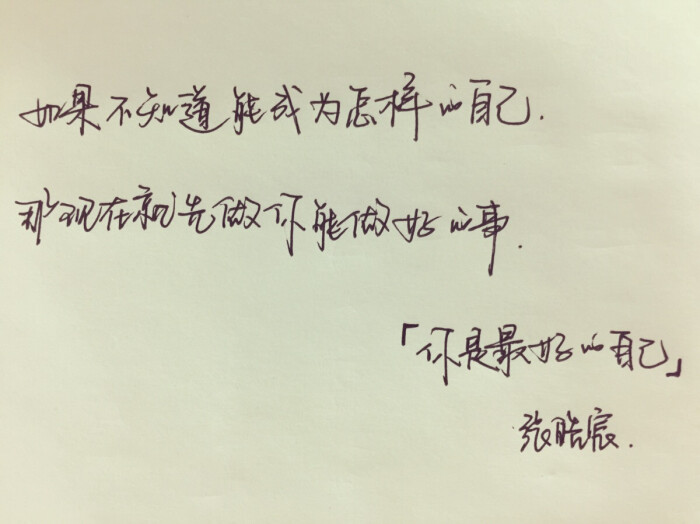 如果不知道能成为怎样的自己.
那现在就先做你能做好的事.
「你是最好的自己」
张皓宸.